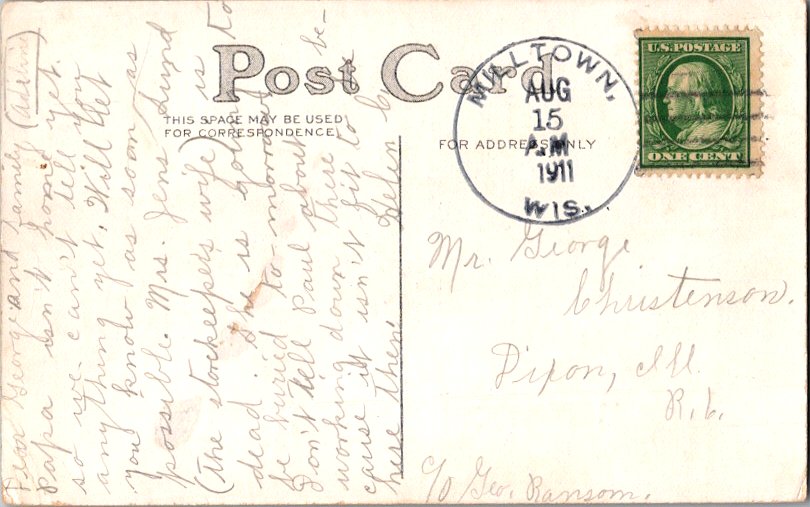 Post Card
THIS SPACE MAY BE USED
FOR CORRESPONDENCE
FOR ADDRESS ONLY
MILLTOWN,
AUG
15
A.M
1911
WIS.
U.S. POSTAGE
ONE CENT
Dear George and family
Papa isn't home yet
so we can't tell you
anything yet. Will let
you know as soon as
possible. Mrs. Jens Lund
(the storekeeper's wife) is
dead & she is going to
be buried to-morrow.
Don't tell Paul about
working down there be-
cause it isn't fit to be
here then. Helen C.
Mr. George
Christenson.
Dixon, Ill.
R.6.
c/o Geo. Ransom.